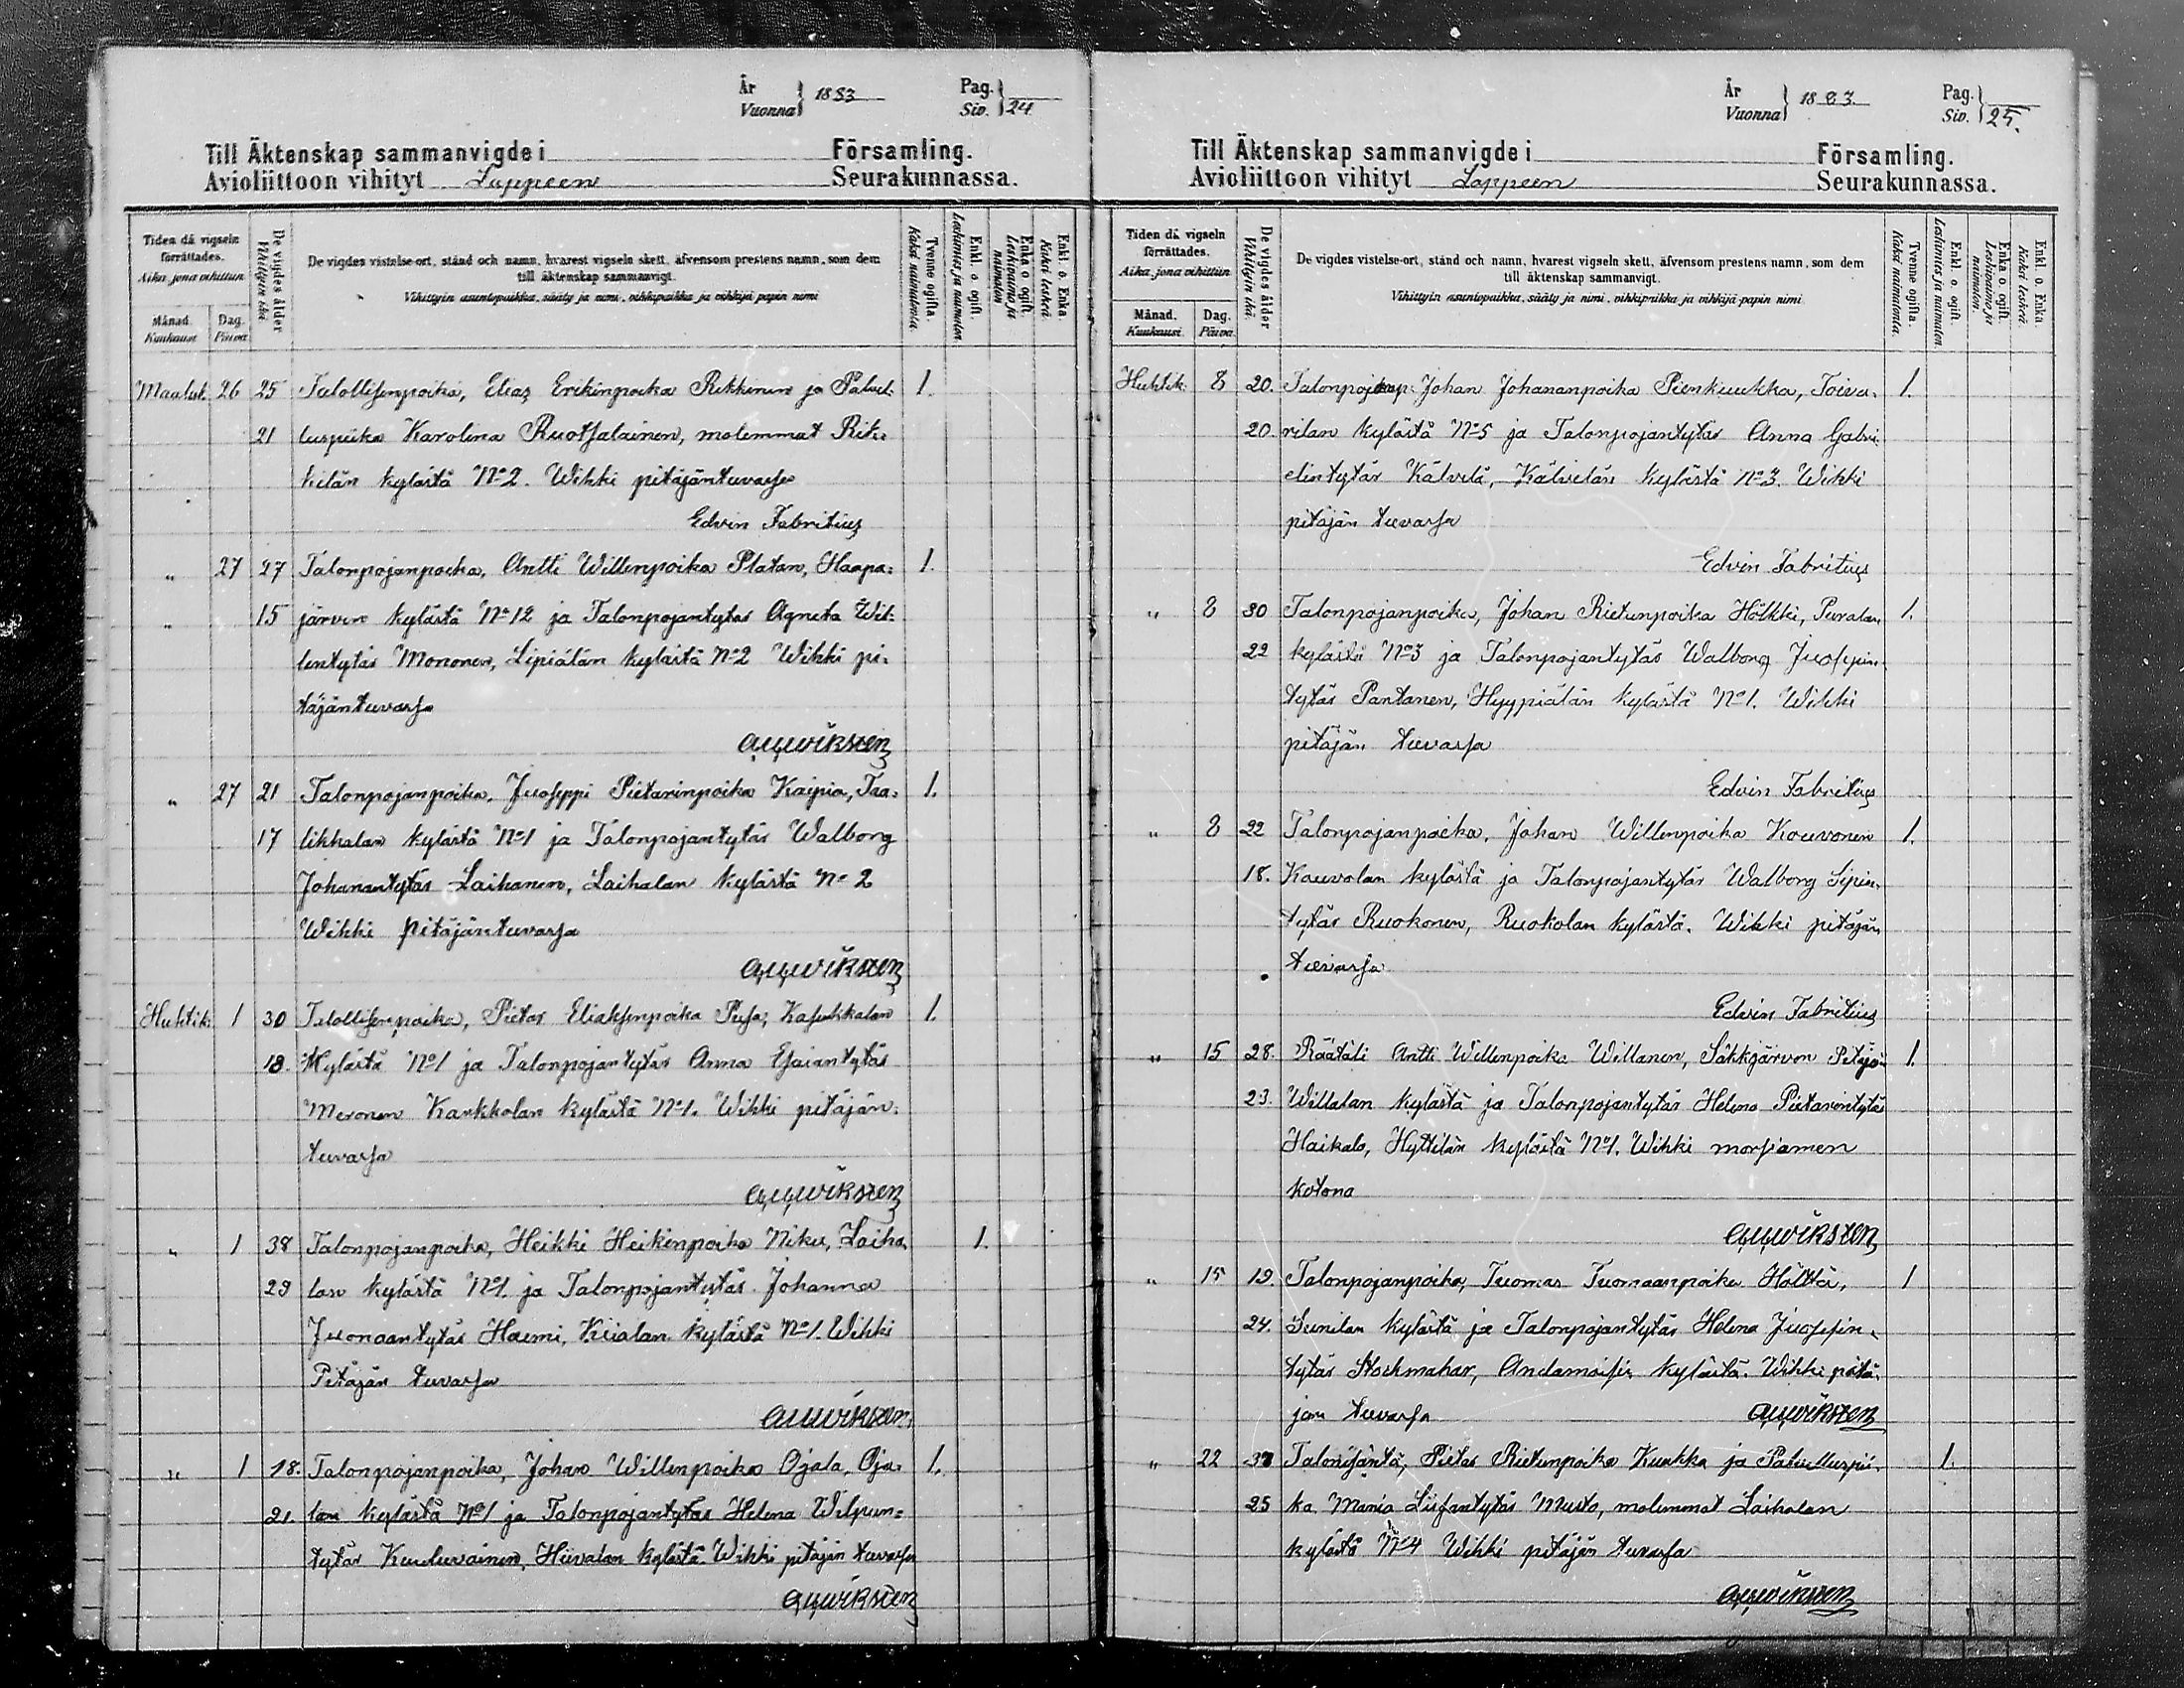 År
Vuonna } 1883
Pag.
Siv. } 24
Till Äktenskap sammanvigde i Församling.
Avioliittoon vihityt Lappeen Seurakunnassa.
Tiden då vigseln förrättades.
Aika jona vihittiin
Månad. Kuukausi
Dag. Päivä
De vigdes ålder
Vihittyin ikä
De vigdes vistelse-ort, stånd och namn, hvarest vigseln skett, äfvensom prestens namn, som dem
till äktenskap sammanvigt.
Vihittyin asuntopaikka, sääty ja nimi, vihkipaikka ja vihkijä papin nimi
Tvenne ogifta.
Kaksi naimatonta.
Enkl. o. ogift.
Leskimies ja naimaton
Enka o. ogift.
Leskivaimo ja naimaton
Enkl. o. Enka.
Kaksi leskeä.
Maalisk. 26 25 Talollisenpoika, Elias Erikinpoika Rikkinen ja Palvel- 1.
21 luspiika Karolina Ruotsalainen, molemmat Rik-
kilän kylästä No 2. Wihki pitäjäntuvassa
Edvin Fabritius
" 27 27 Talonpojanpoika, Antti Willenpoika Platan, Haapa- 1.
" 15 järven kylästä No 12 ja Talonpojantytär Agneta Wil-
lentytär Mononen, Lipiälän kylästä No 2 Wihki pi-
täjäntuvassa
" 27 21 Talonpojanpoika, Juoseppi Pietarinpoika Kaipia, Taa- 1.
17 likkalan kylästä No 1 ja Talonpojantytär Walborg
Johanantytär Laihanen, Laihalan kylästä No 2
Wihki pitäjäntuvassa
Huhtik. 1 30 Talollisenpoika, Pietar Eliaksenpoika Pusa, Kasukkalan 1.
18. Kylästä No 1 ja Talonpojantytär Anna Esaiantytär
Meronen Karkkolan kylästä No 1. Wihki pitäjän-
tuvassa
" 1 38 Talonpojanpoika, Heikki Heikinpoika Niku, Laiha- 1.
29 lan kylästä No 1. ja Talonpojantytär Johanna
Juonaantytär Haimi, Kiialan kylästä No 1. Wihki
Pitäjän tuvassa
" 1 18. Talonpojanpoika, Johan Willenpoika Ojala, Oja- 1.
21. lan kylästä No 1 ja Talonpojantytär Helena Wilpun-
tytär Kuuluvainen, Hiivalan kylästä. Wihki pitäjän tuvassa
År
Vuonna } 1883.
Pag.
Siv. } 25.
Till Äktenskap sammanvigde i Församling.
Avioliittoon vihityt Lappeen Seurakunnassa.
Tiden då vigseln förrättades.
Aika jona vihittiin
Månad. Kuukausi
Dag. Päivä
De vigdes ålder
Vihittyin ikä.
De vigdes vistelse-ort, stånd och namn, hvarest vigseln skett, äfvensom prestens namn, som dem
till äktenskap sammanvigt.
Vihittyin asuntopaikka, sääty ja nimi, vihkipaikka ja vihkijä papin nimi
Tvenne ogifta.
Kaksi naimatonta.
Enkl. o. ogift.
Leskimies ja naimaton.
Enka o. ogift.
Leskivaimo ja naimaton.
Enkl. o. Enka.
Kaksi leskeä.
Huhtik. 8 20. Johan Johananpoika Pienkuukka, Toiva- 1.
20. rilan kylästä No 5 ja Talonpojantytär Anna Gabri-
elintytär Kälvelä, Kälvelän kylästä No 3. Wihki
pitäjän tuvassa
Edvin Fabritius
" 8 30 Talonpojanpoika, Johan Rietunpoika Hölkki, Puralan 1.
22 kylästä No 3 ja Talonpojantytär Walborg Juosepin-
tytär Pantanen, Hyypiälän kylästä No 1. Wihki
pitäjän tuvassa
Edvin Fabritius
" 8 22 Talonpojanpoika, Johan Willenpoika Kouvonen 1.
18. Kauvolan kylästä ja Talonpojantytär Walborg Sipin-
tytär Ruokonen, Ruokolan kylästä. Wihki pitäjän
tuvassa
Edvin Fabritius
" 15 28. Räätäli Antti Willenpoika Willanen, Säkkjärven Pitäjän 1.
23. Willalan kylästä ja Talonpojantytär Helena Pietarintytär
Haikala, Hyttilän kylästä No 1. Wihki morsiamen
kotona
" 15 19. Talonpojanpoika, Tuomas Tuomaanpoika Hölttä, 1
24. Sunilan kylästä ja Talonpojantytär Helena Juosepin-
tytär Stockmakar, kylästä. Wihki pitä-
jän tuvassa
" 22 Talonisäntä, Pietar Rietunpoika Kuukka ja Palvelluspii- 1.
25 ka Maria Liisantytär Musto, molemmat Laihalan
kylästä No 4 Wihki pitäjän tuvassa